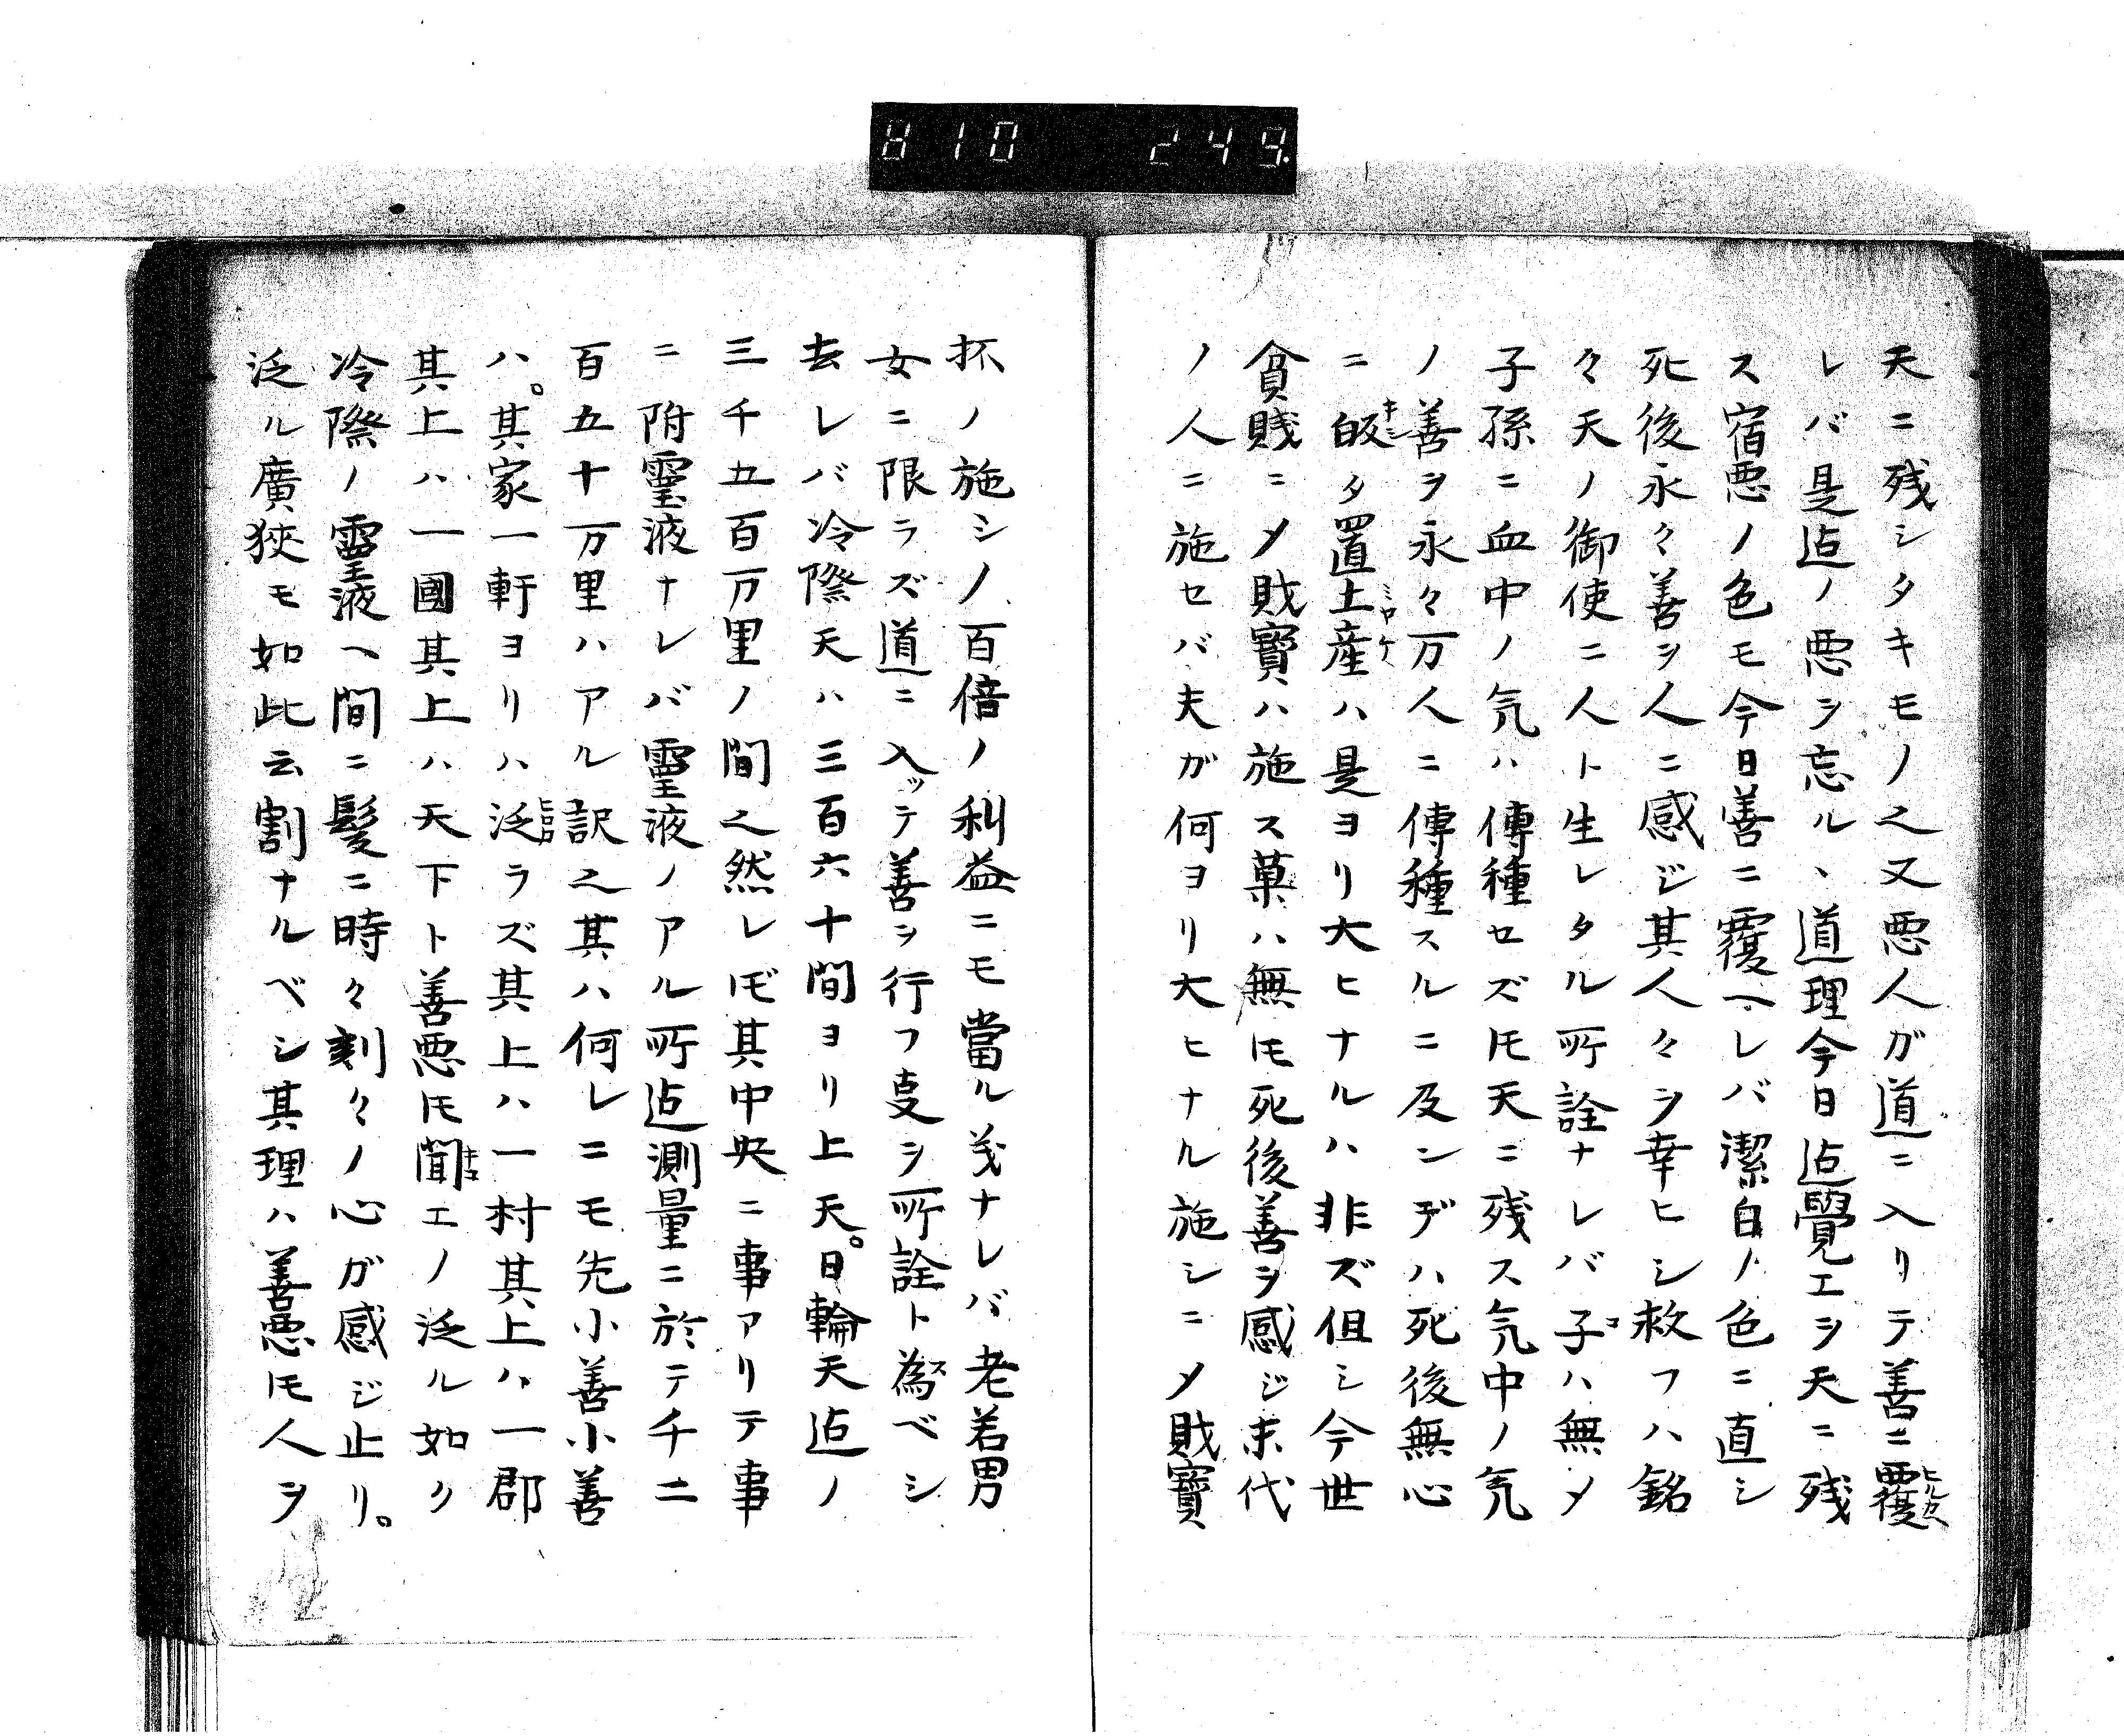 810 249.
天ニ残シタキモノ之又悪人ガ道ニ入リテ善ニ覆
レバ是迠ノ悪ヲ忘ル、道理今日迠覺エヲ天ニ残
ス宿悪ノ色モ今日善ニ覆ヘレバ潔白ノ色ニ直シ
死後永々善ヲ人ニ感ジ其人々ヲ幸ヒシ救フハ銘
々天ノ御使ニ人ト生レタル所詮ナレバ子ハ無メ
子孫ニ血中ノ気ハ傳種セズ𪜈天ニ残ス気中ノ気
ノ善ヲ永々万人ニ傳種スルニ及ンデハ死後無心
ニ皈タ置土産ハ是ヨリ大ヒナルハ非ズ伹シ今世
貪賤ニメ財寳ハ施ス菓ハ無𪜈死後善ヲ感ジ末代
ノ人ニ施セバ夫ガ何ヨリ大ヒナル施シニメ財寳
抔ノ施シノ百倍ノ利益ニモ當ル茂ナレバ老若男
女ニ限ラズ道ニ入ッテ善ヲ行フ叓ヲ所詮ト為ベシ
去レバ冷際天ハ三百六十間ヨリ上天。日輪天迠ノ
三千五百万里ノ間之然レ𪜈其中央ニ事アリテ事
ニ附靈液ナレバ靈液ノアル所迠測量ニ於テ千二
百五十万里ハアル訳之其ハ何レニモ先小善小善
ハ。其家一軒ヨリハ泛ラズ其上ハ一村其上ハ一郡
其上ハ一國其上ハ天下ト善悪𪜈聞エノ泛ル如ク
冷際ノ靈液ヘ間ニ髪ニ時々刻々ノ心ガ感ジ止リ。
泛ル廣狹モ如此云割ナルベシ其理ハ善悪𪜈人ヲ